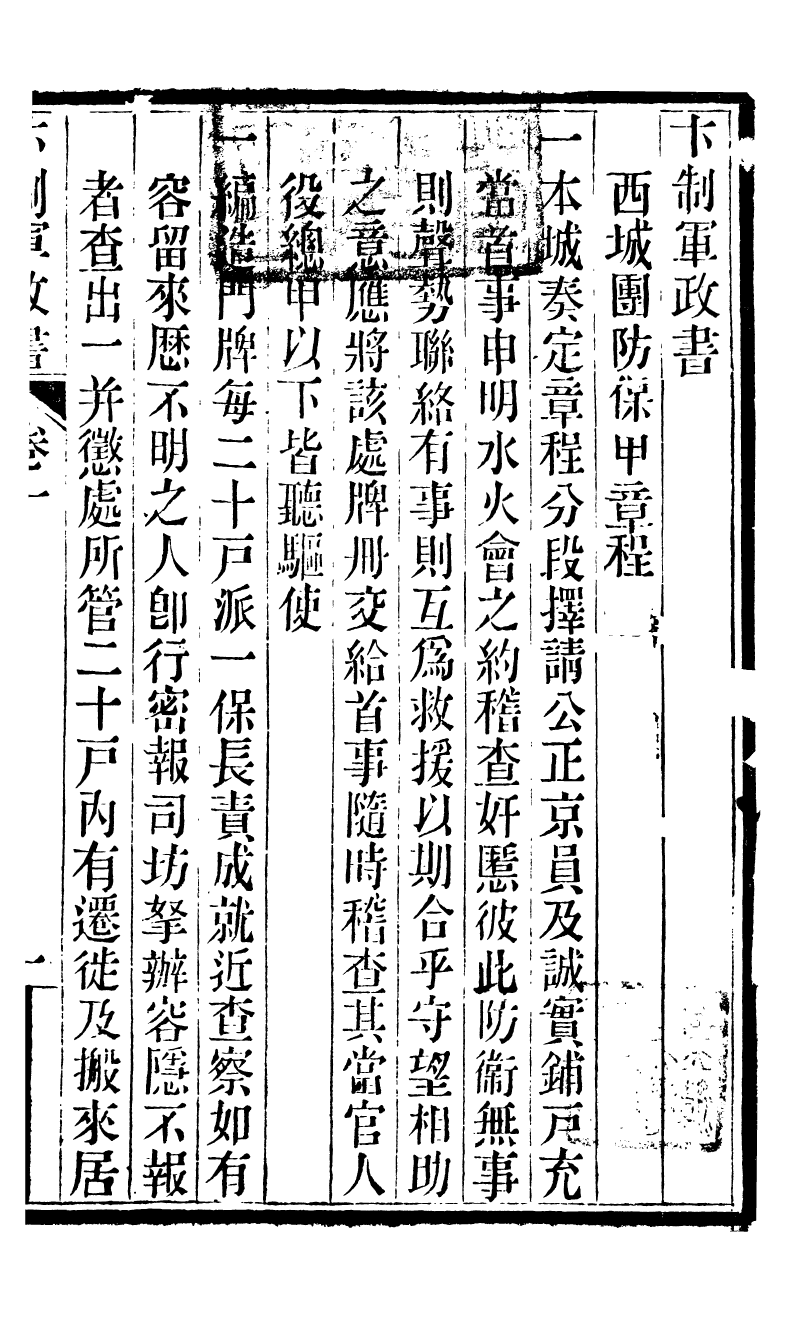 卞制軍政書
西城團防保甲章程
一本城奏定章程分段擇請公正京員及誠實鋪戸充
當首事申明水火會之約稽查奸慝彼此防衛無事
則聲勢聯絡有事則互爲救援以期合乎守望相助
之意應將該處牌冊交給首事隨時稽查其當官人
役總甲以下皆聽驅使
一編造門牌每二十戸派一保長責成就近查察如有
容留來歷不明之人卽行密報司坊拏辦容隱不報
者查出一并懲處所管二十戸內有遷徙及搬來居
卞制軍政書 卷一 一